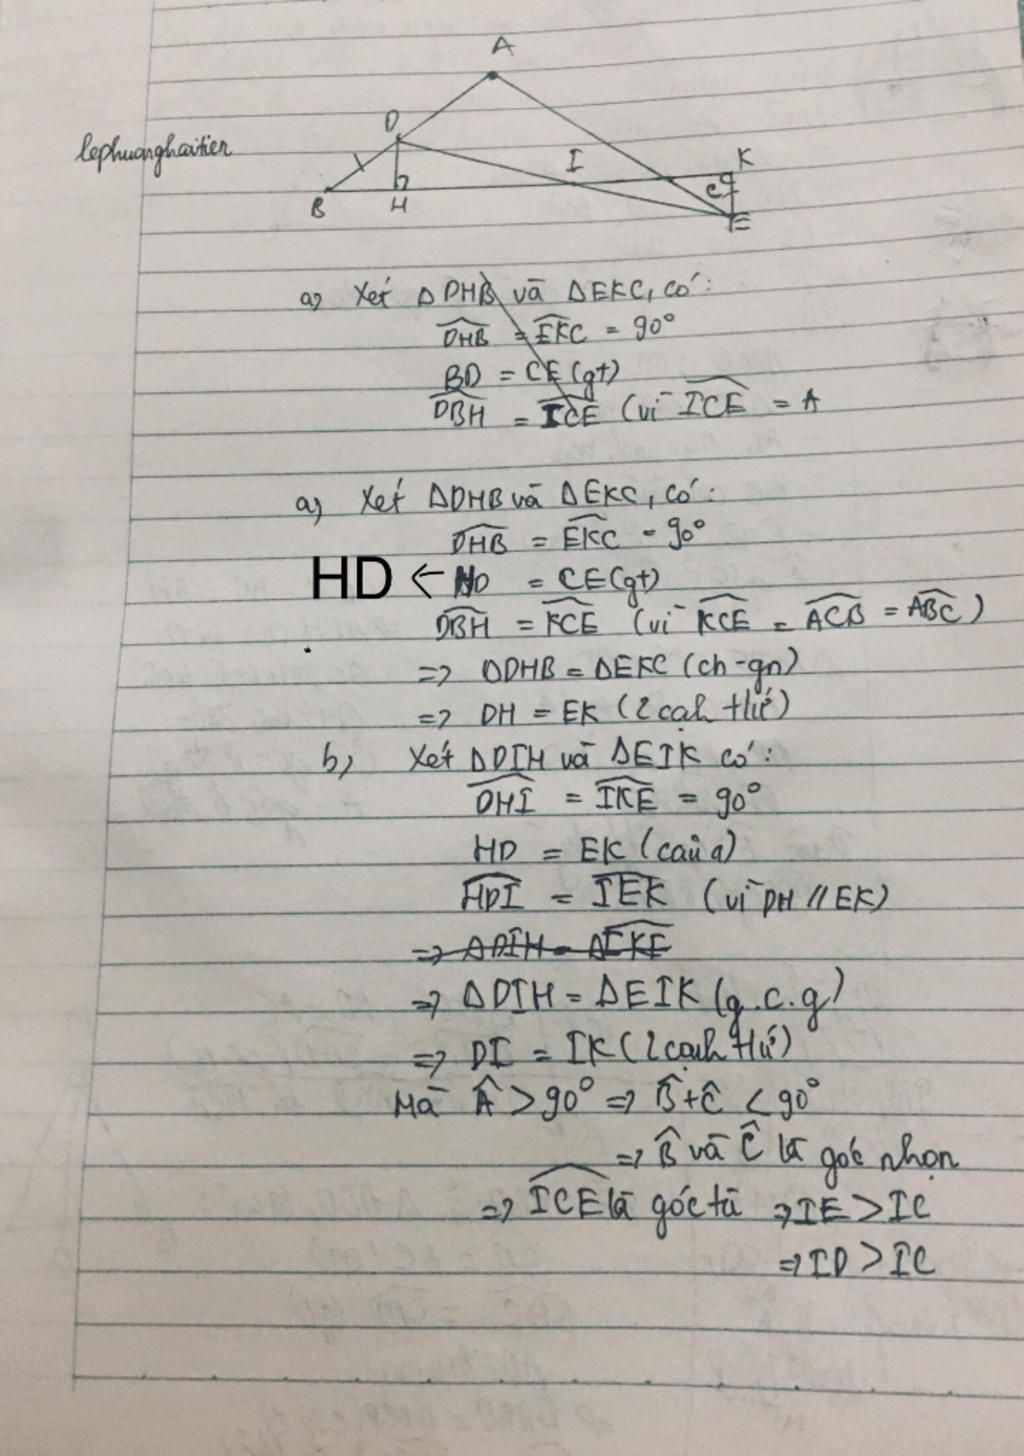 A
D
lephuonghaitien
I
K
C
B
H
E
a) Xét ΔDHB và ΔEKC, có:
DHB = EKC = 90°
BD = CE (gt)
DBH = ICE (vì ICE = A
a) Xét ΔDHB và ΔEKC, có:
DHB = EKC = 90°
HD ← = CE (gt)
DBH = KCE (vì KCE = ACB = ABC)
=> ΔDHB = ΔEKC (ch-gn)
=> DH = EK (2 cạh tứ)
b) Xét ΔDIH và ΔEIK có:
DHI = IKE = 90°
HD = EK (câu a)
HDI = IEK (vì DH // EK)
=> ΔDIH = ΔEIK (g.c.g)
=> DI = IK (2 cạnh tứ)
Mà Â > 90° => B̂ + Ĉ < 90°
=> B̂ và Ĉ là góc nhọn
=> ICE là góc tù => IE > IC
=> ID > IC